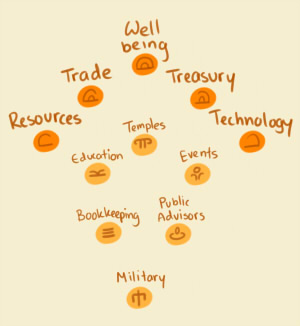 Well
being
Trade
Treasury
Resources
Temples
Technology
Education
Events
Bookkeeping
Public
Advisors
Military